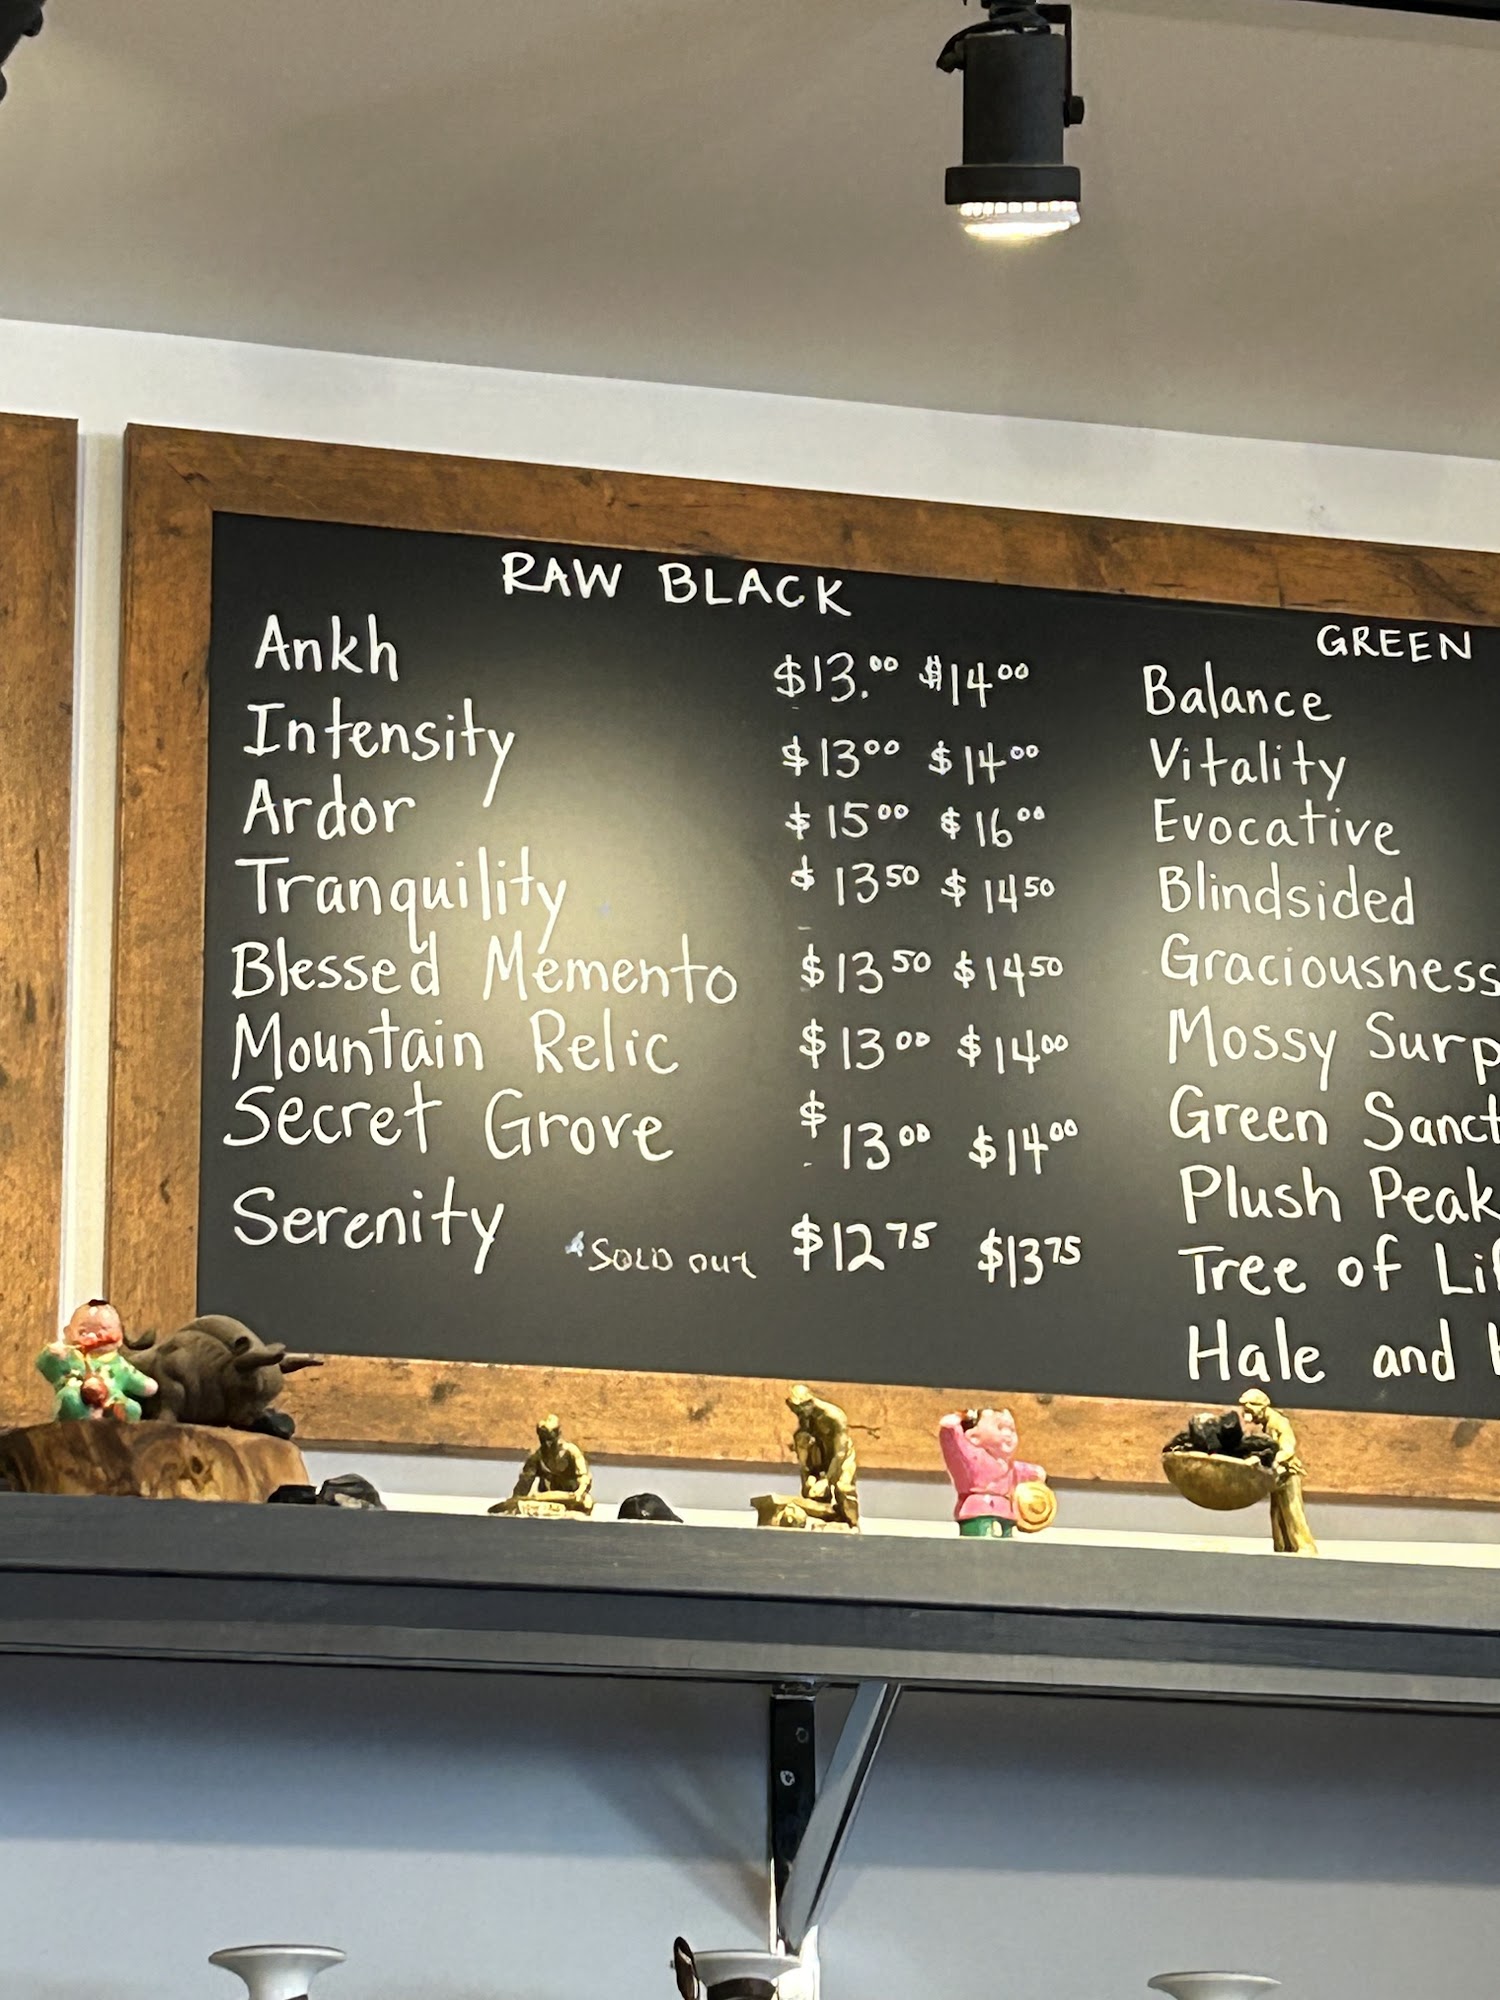 RAW BLACK
Ankh $13.00 $14 00
Intensity $13 00 $14 00
Ardor $15 00 $16 00
Tranquility $13 50 $14 50
Blessed Memento $13 50 $14 50
Mountain Relic $13 00 $14 00
Secret Grove $13 00 $14 00
Serenity *SOLD out $12 75 $13 75
GREEN
Balance
Vitality
Evocative
Blindsided
Graciousness
Mossy Surp
Green Sanct
Plush Peak
Tree of Lif
Hale and